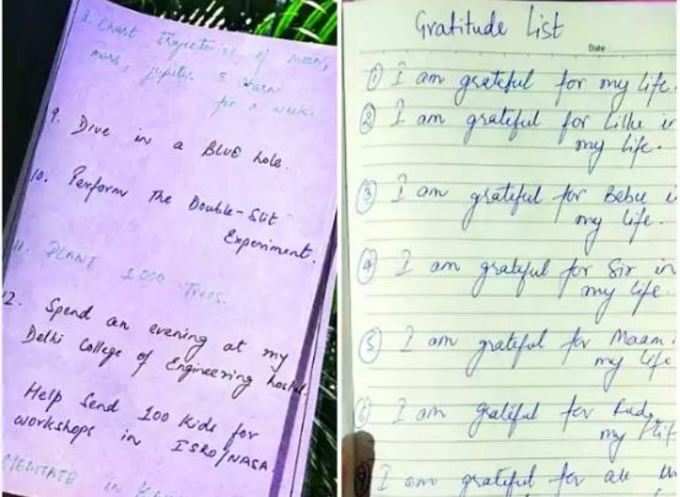 8. Chart trajectories of moon,
mars, jupiter & Saturn
for a week.
9. Dive in a BLUE hole.
10. Perform The Double-Slit
Experiment.
11. PLANT 1000 Trees.
12. Spend an evening at my
Delhi College of Engineering hostel.
Help Send 100 Kids for
workshops in ISRO/NASA
MEDITATE in
Gratitude List
Date
① I am grateful for my life.
② I am grateful for in
my life.
③ I am grateful for i
my life.
④ I am grateful for Sir in
my life.
⑤ I am grateful for Maam i
my life
⑥ I am grateful for
my life
I am grateful for all